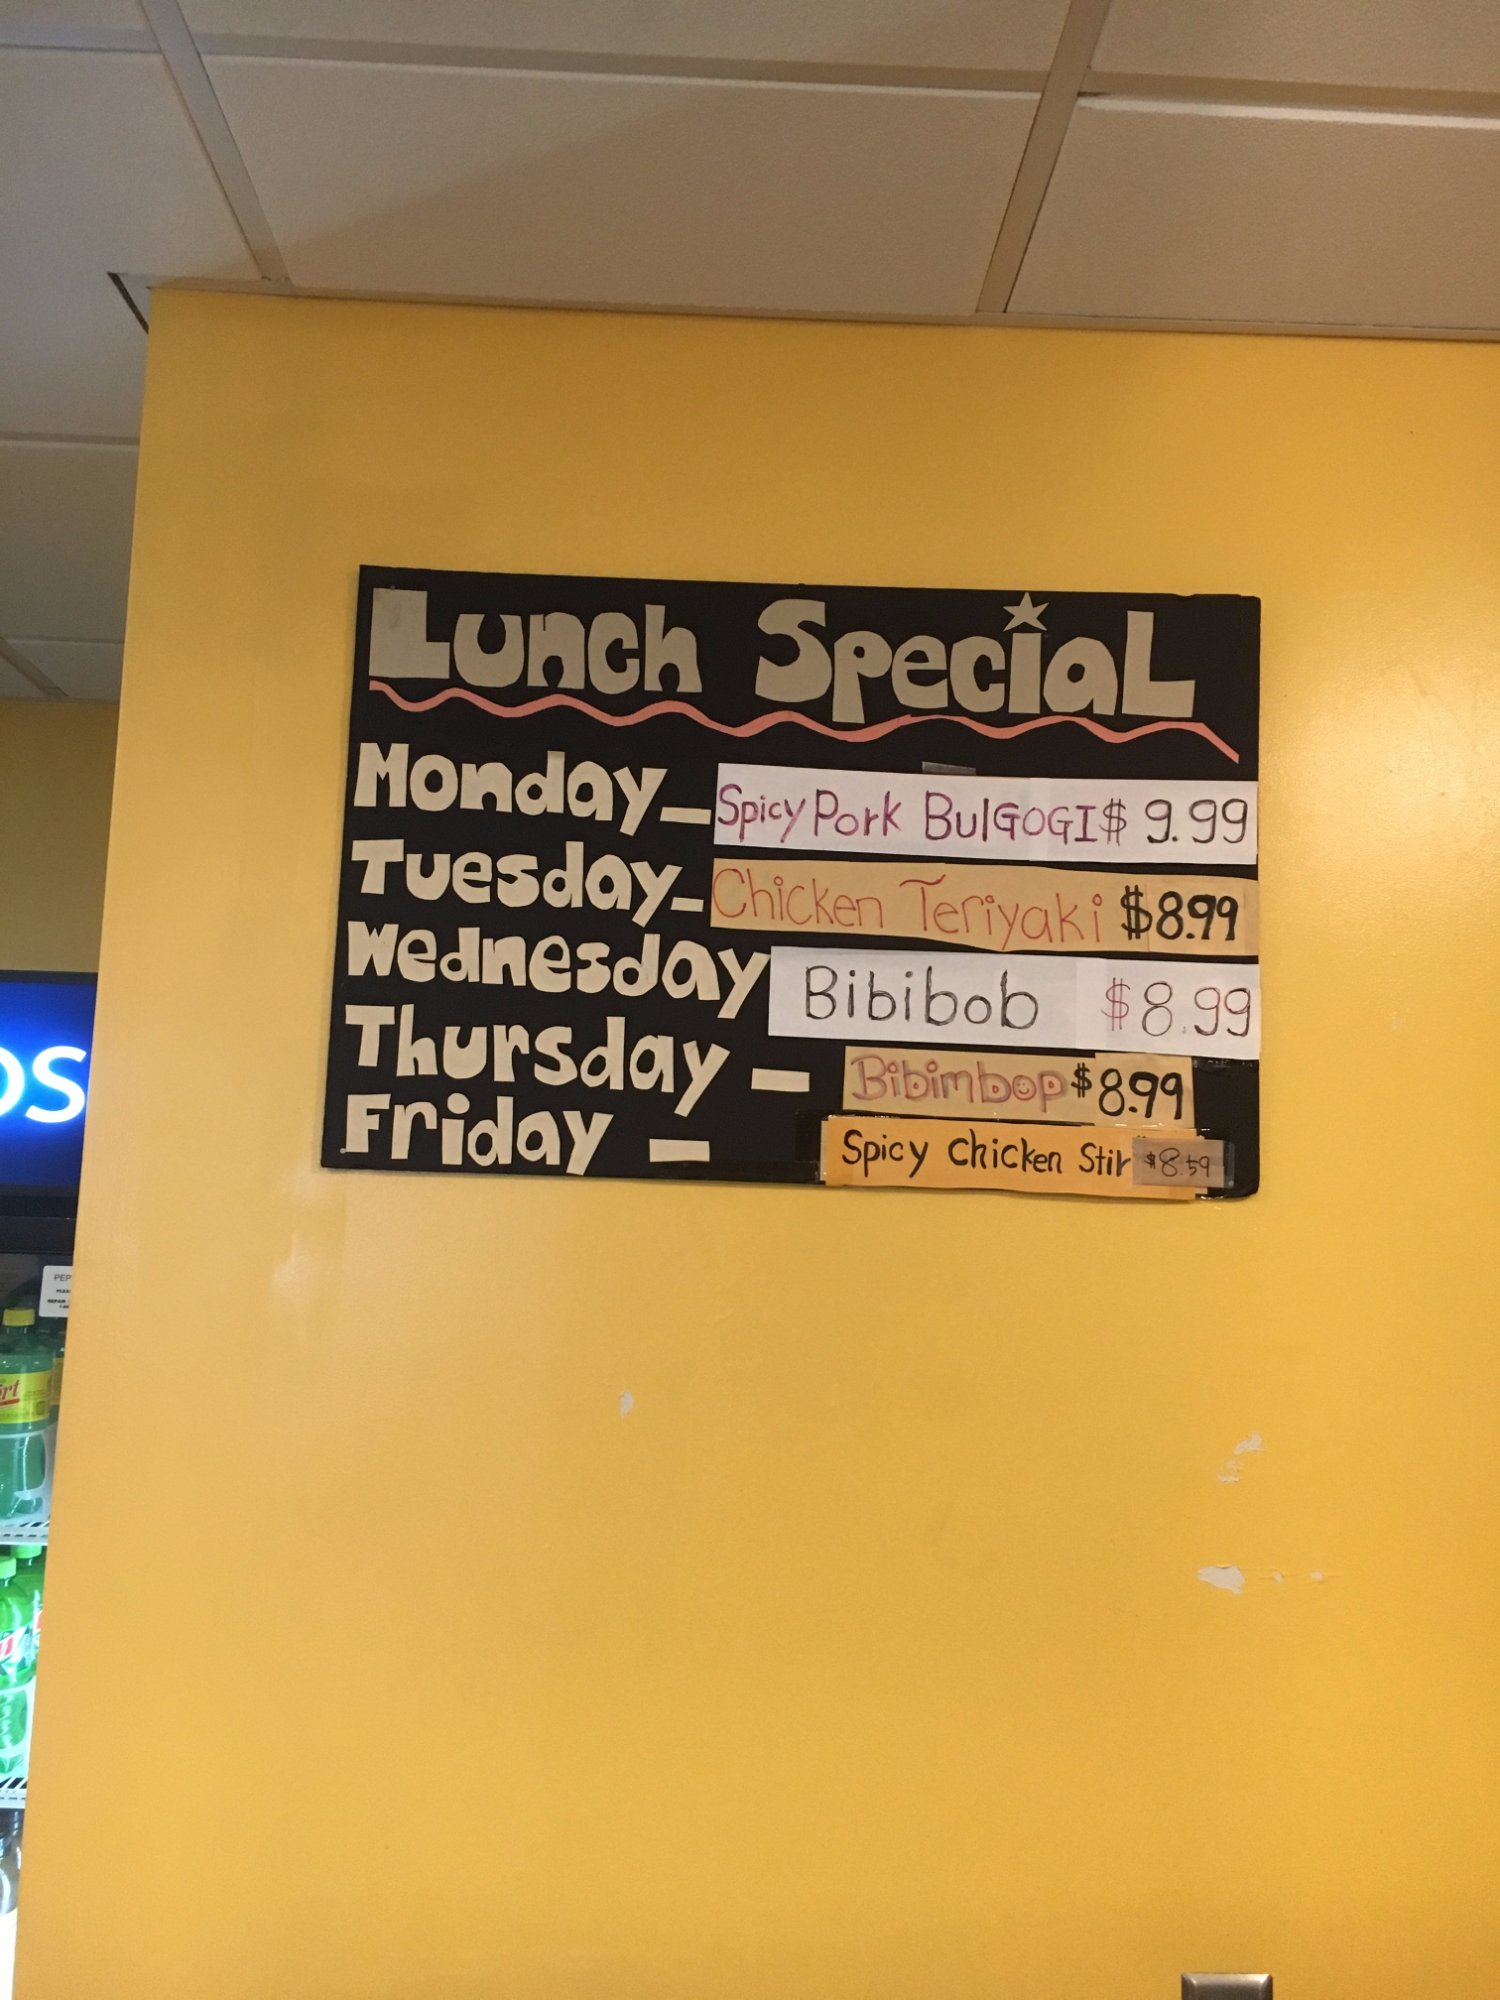 Lunch Special
Monday – Spicy Pork BulGOGI $ 9.99
Tuesday – Chicken Teriyaki $8.99
Wednesday Bibibob $8.99
Thursday – Bibimbop $8.99
Friday – Spicy Chicken Stir $8.59
OS
PEP